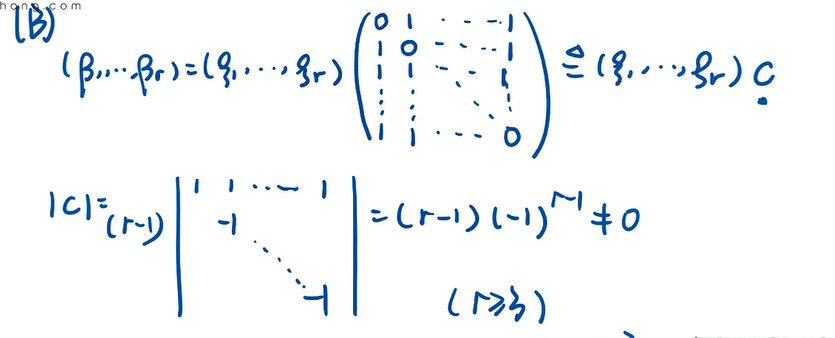 hang.com
(B)
(β₁,…,βᵣ)=(ξ₁,…,ξᵣ) (0 1 … 1; 1 0 … 1; 1 1 … 1; ⋮ ⋮ ⋱ ⋮; 1 1 … 0) ≜ (ξ₁,…,ξᵣ) C
|C|=(r-1) |1 1 … 1; -1; ⋱; -1| =(r-1)(-1)^{r-1} ≠ 0
(r≥3)